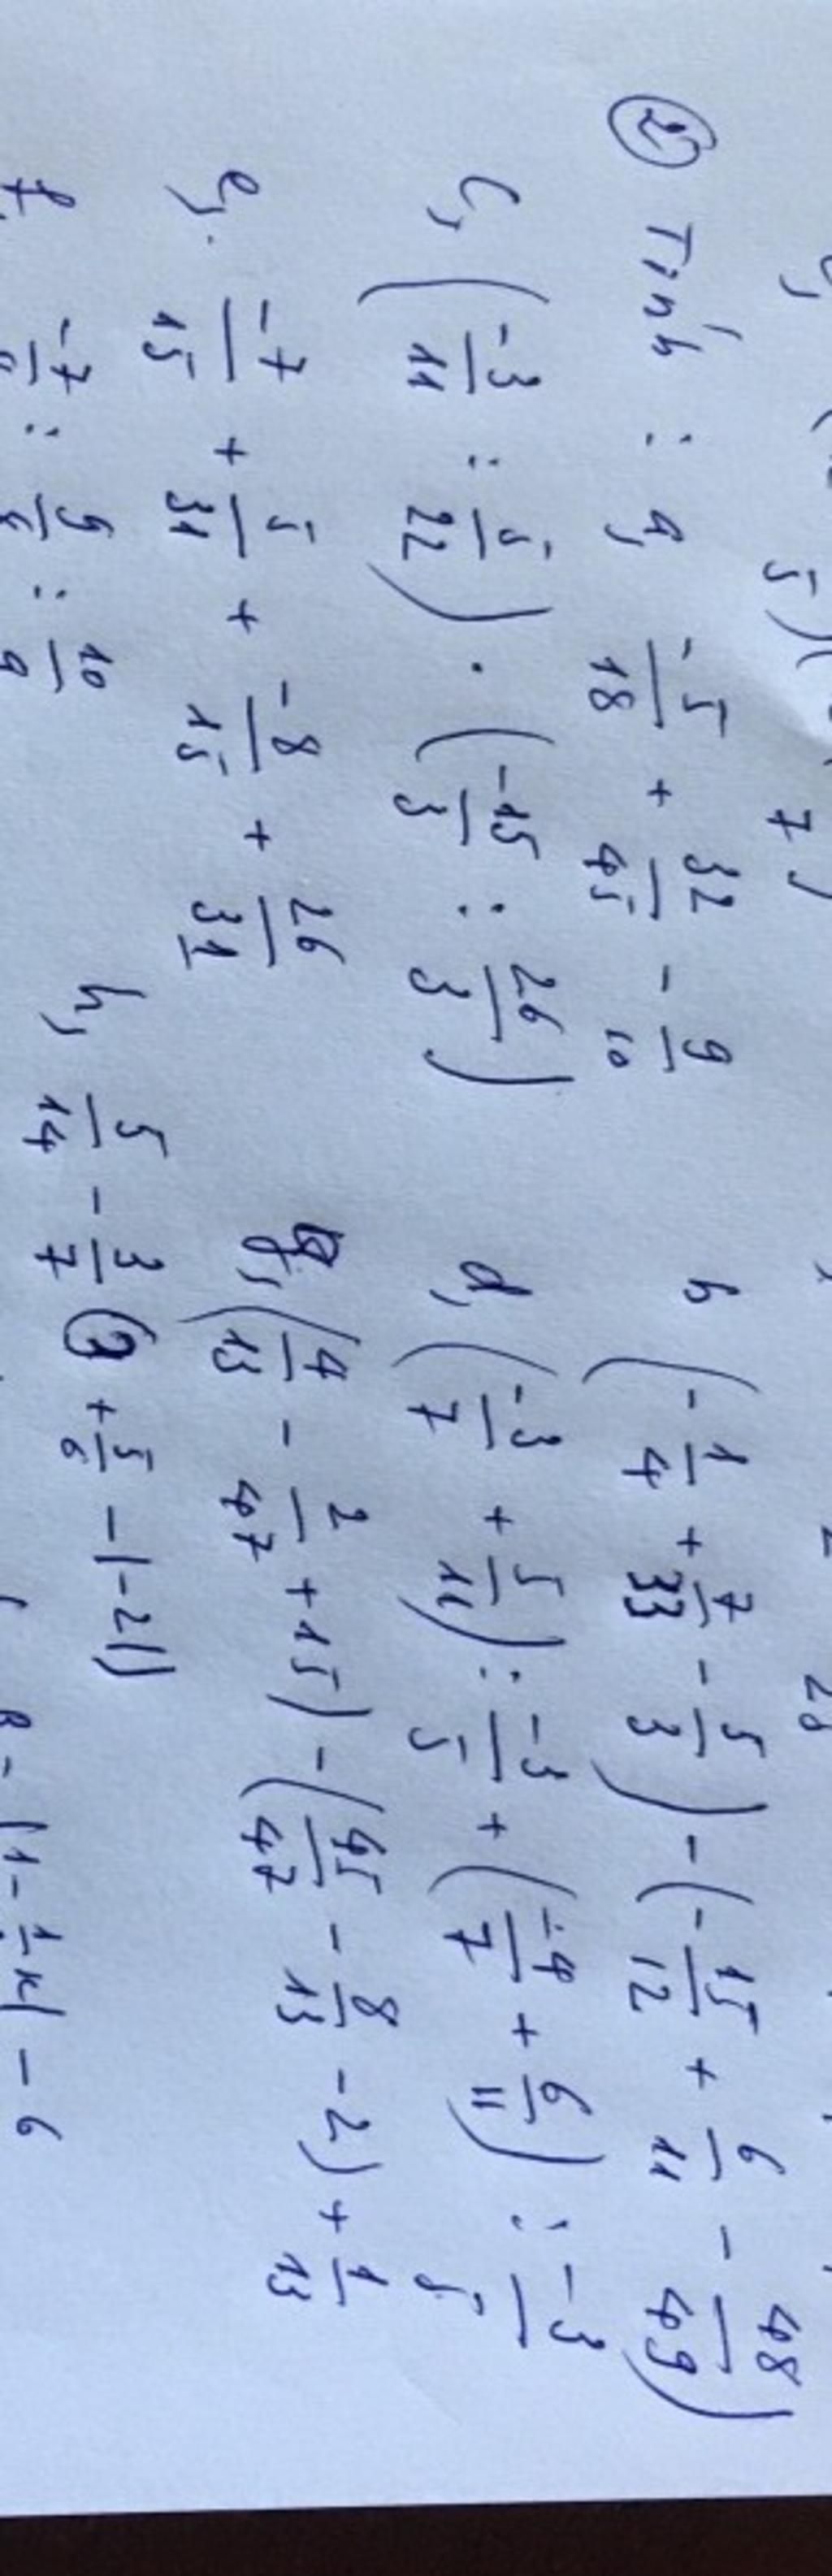 ② Tính : a, -5/18 + 32/45 - 9/10
b (-1/4 + 7/33 - 5/3) - (-15/12 + 6/11 - 48/49)
c, (-3/11 : 5/22) . (-15/3 : 26/3)
d, (-3/7 + 5/11) : -3/5 + (-4/7 + 6/11) : -3/5
e, -7/15 + 5/31 + -8/15 + 26/31
g, (4/13 - 2/47 + 15) - (45/47 - 8/13 - 2) + 1/13
f, -7 : 5 : 10/9
h, 5/14 - 3/7 + 5/6 - |-2|)
|1 - 1 x| - 6